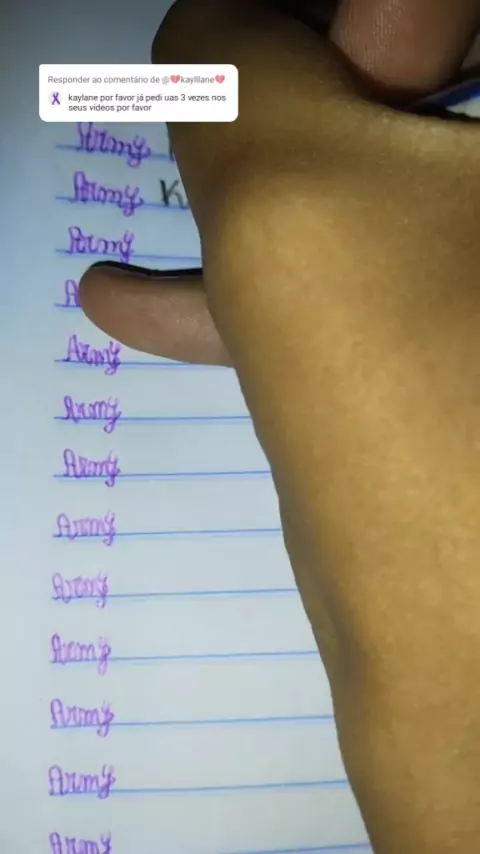 Responder ao comentário de @💔kaylllane💔
kaylane por favor já pedi uas 3 vezes nos
seus vídeos por favor
Army
Army K
Army
A
Army
Army
Army
Army
Army
Army
Army
Army
Army